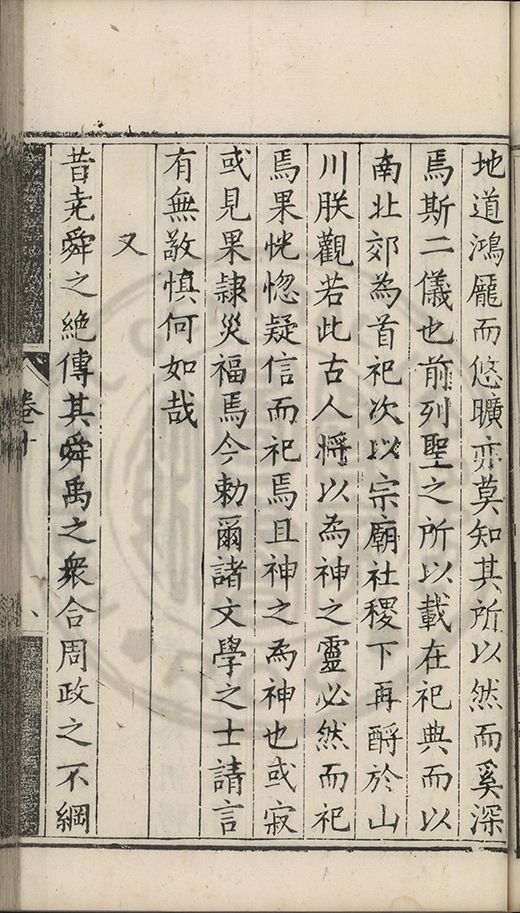 地道鴻龎而悠曠亦莫知其所以然而奚深
焉斯二儀也前列聖之所以載在祀典而以
南北郊為首祀次以宗廟社稷下再酹於山
川朕觀若此古人將以為神之靈必然而祀
焉果恍惚疑信而祀焉且神之為神也或寂
或見果隷災福焉今勅爾諸文學之士請言
有無敬慎何如哉
又
昔堯舜之絶傳其舜禹之衆合周政之不綱
卷十